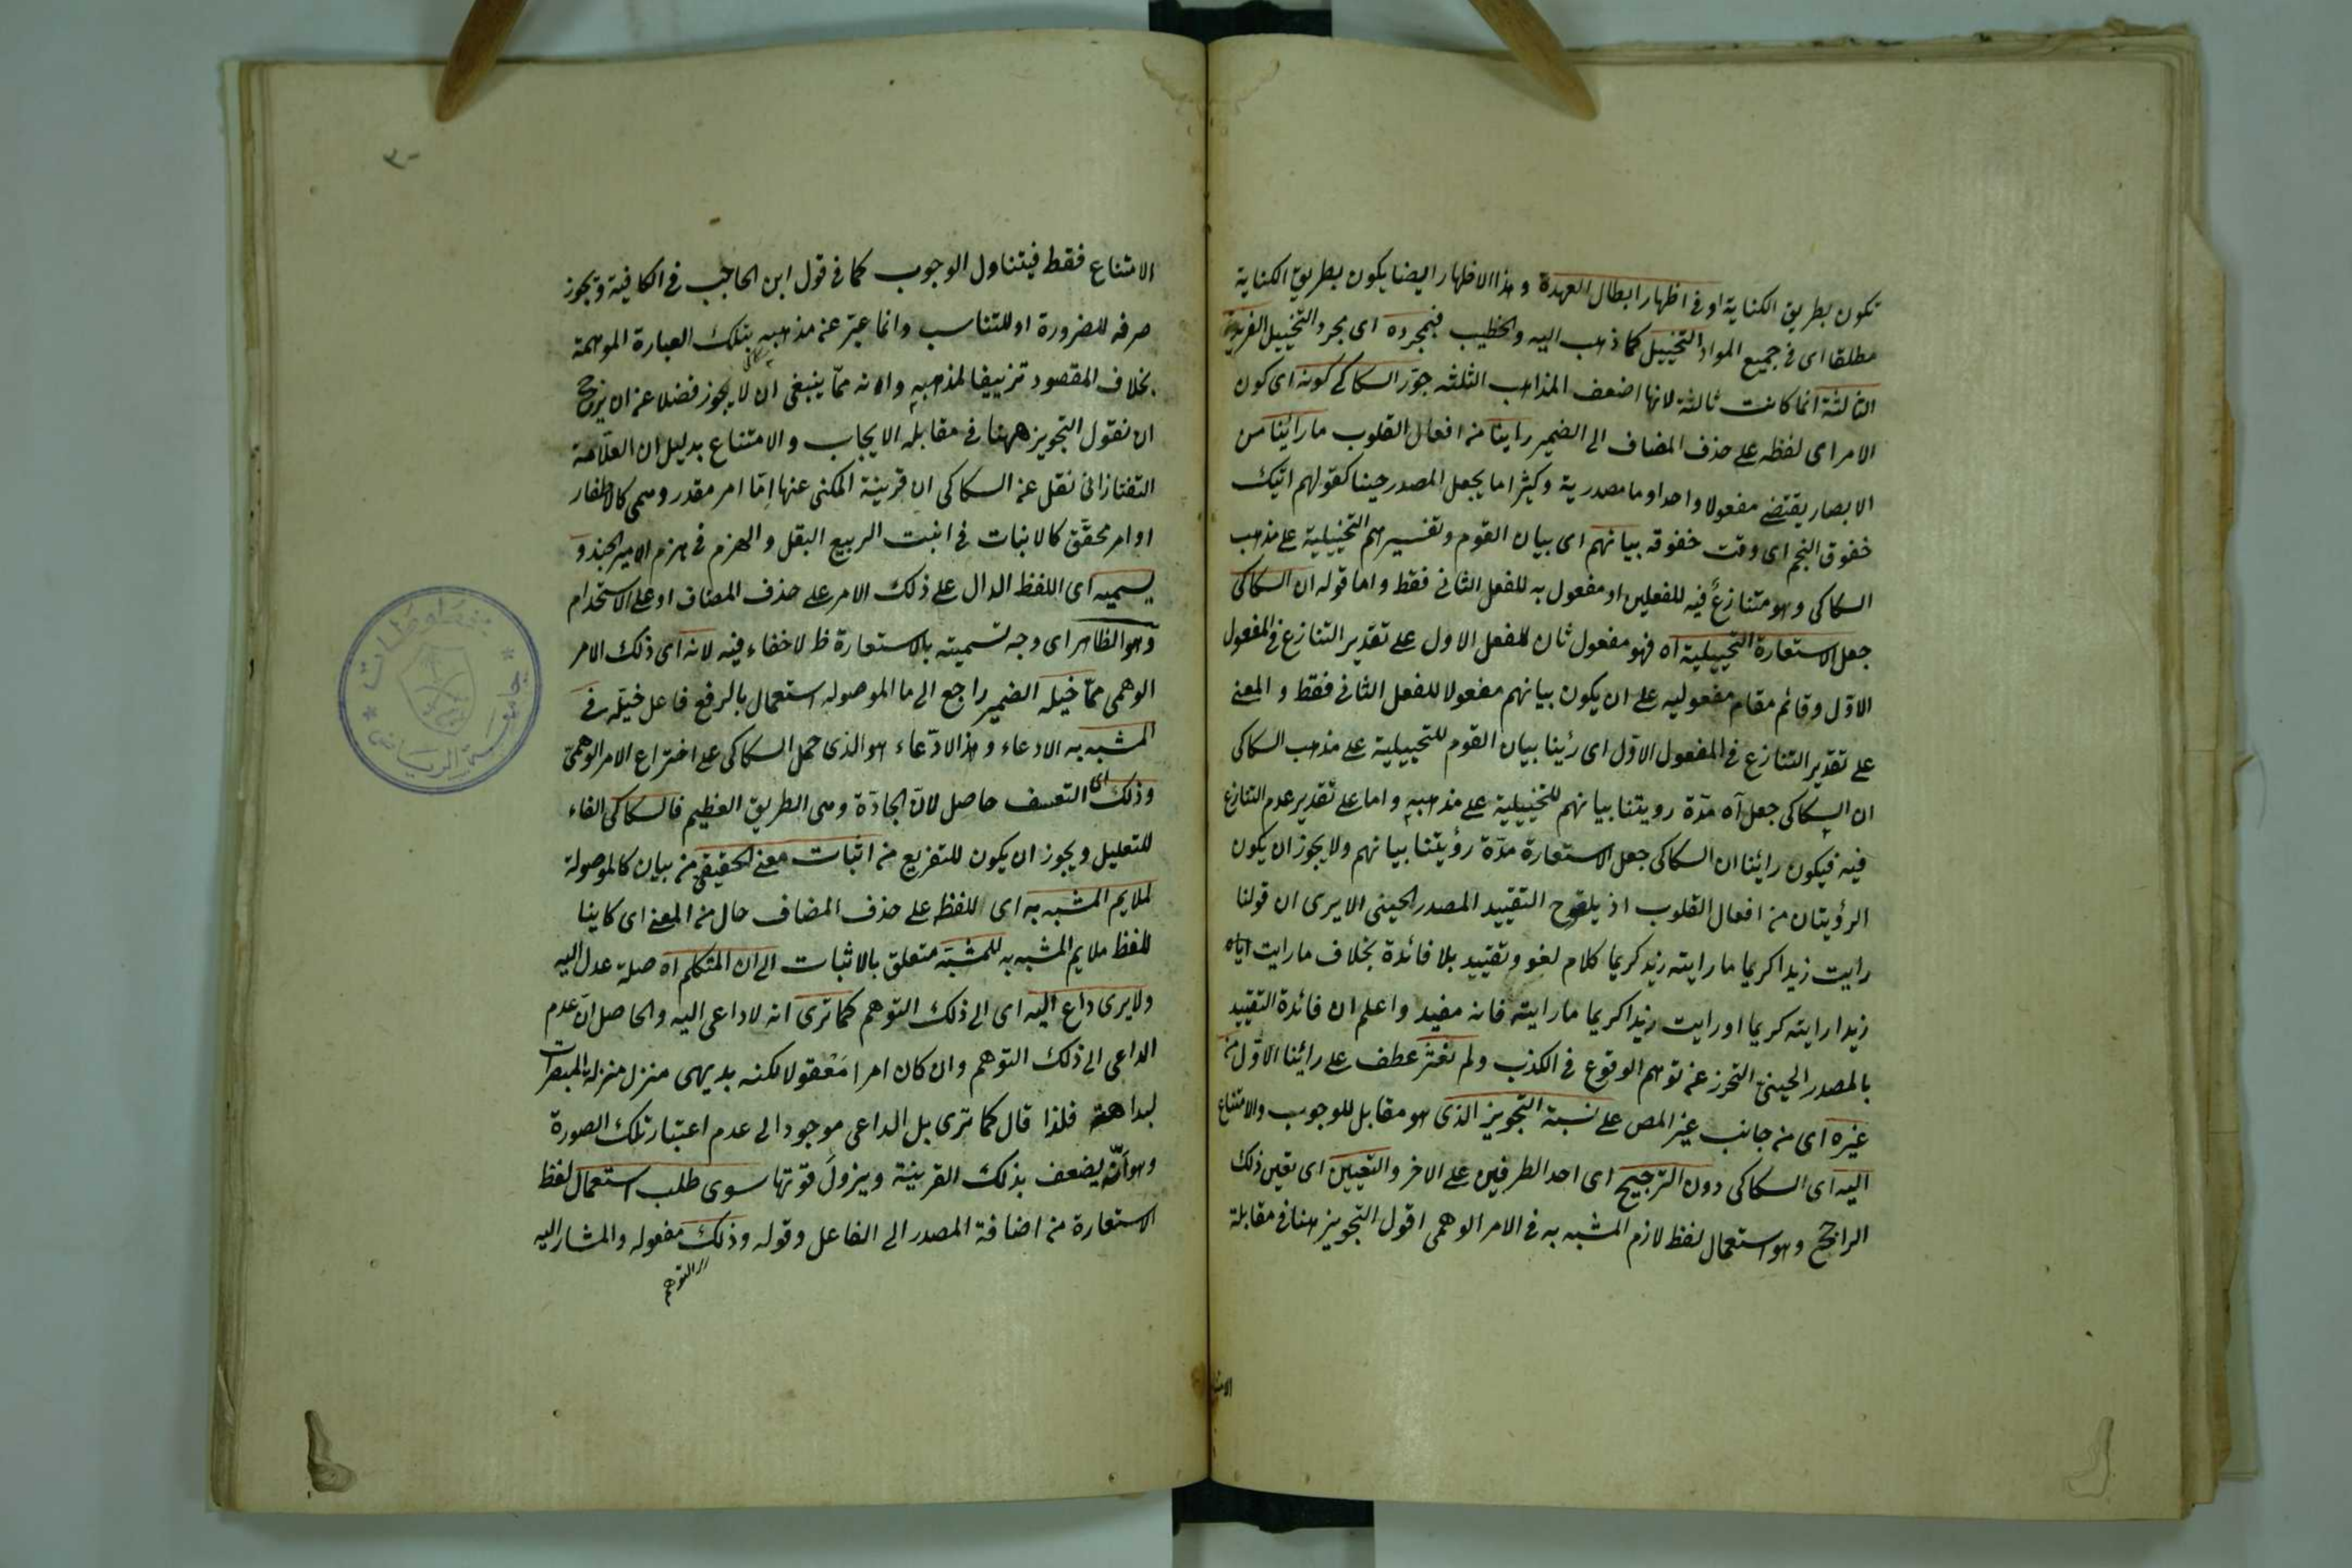 تكون بطريق الكناية او فى اظهار ابطال العهدة وهذا الاظهار ايضا يكون بطريق الكناية
مطلقا اى فى جميع المواد التخييل كما ذهب اليه والخطيب فبمجرده اى مجرد التخييل الفريدة
الثالثة انما كانت ثالثة لانها اضعف المذاهب الثلثه جوّز السكاكى كونه اى كون
الامر اى لفظه على حذف المضاف الى الضمير راينا من افعال القلوب ما رائينا من
الابصار يقتضى مفعولا واحدا وما مصدرية وكثيرا ما يجعل المصدر حينا كقولهم اتيك
خفوق النجم اى وقت خفوقه بيانهم اى بيان القوم وتفسيرهم التخييلية على مذهب
السكاكى وهو متنازعٌ فيه للفعلين او مفعول به للفعل الثانى فقط واما قوله ان السكاكى
جعل الاستعارة التخييلية اه فهو مفعول ثان للفعل الاول على تقدير التنازع فى المفعول
الاوّل وقائم مقام مفعوليه على ان يكون بيانهم مفعولا للفعل الثانى فقط والمعنى
على تقدير التنازع فى المفعول الاوّل اى رئينا بيان القوم للتخييلية على مذهب السكاكى
ان السكاكى جعل آه مدّة رويتنا بيانهم للتخييلية على مذهبه واما على تقدير عدم التنازع
فيه فيكون رائنا ان السكاكى جعل الاستعارة مدّة رؤيتنا بيانهم ولا يجوز ان يكون
الرؤيتان من افعال القلوب اذ التقييد المصدر الحينى الا يرى ان قولنا
رايت زيدا كريما ما رايته زيد كريما كلام لغو وتقييد بلا فائدة بخلاف ما رايت اياه
زيدا رايته كريما او رايت زيدا كريما ما رايته فانه مفيد واعلم ان فائدة التقييد
بالمصدر الحينىّ التحرز عن توهم الوقوع فى الكذب ولم نغتر عطف على رائنا الاوّل من
غيره اى من جانب غير المص على نسبة التجويز الذى هو مقابل للوجوب والامتناع
اليه اى السكاكى دون الترجيح اى احد الطرفين على الاخر والتعيين اى تعين ذلك
الراجح وهو استعمال لفظ لازم المشبه به فى الامر الوهمى اقول التجويز هنا فى مقابلة
الامتناع فقط فيتناول الوجوب كما فى قول ابن الحاجب فى الكافية ويجوز
صرفه للضرورة او للتناسب وانما عبّر عن مذهبه بتلك العبارة الموهمة
بخلاف المقصود تزييفا لمذهبه وانه ممّا ينبغى ان لا يجوز فضلا عن ان يرجح
ان نقول التجويز ههنا فى مقابلة الايجاب والامتناع بدليل ان العلّامة
التفتازانى نقل عن السكاكى ان قرينة المكنى عنها امّا امر مقدر وهمى كالاظفار
او امر محقّق كالانبات فى انبت الربيع البقل والهزم فى هزم الامير الجند و
يسميه اى اللفظ الدال على ذلك الامر على حذف المضاف او على الاستخدام
وهو الظاهر اى وجه تسميته بالاستعارة ظ لا خفاء فيه لانه اى ذلك الامر
الوهمى ممّا خيّله الضمير راجع الى ما الموصولة استعمال بالرفع فاعل خيّله فى
المشبه به الادعاء وهذا الادّعاء هو الذى حمل السكاكى على اختراع الامر الوهمىّ
وذلك اى التعسف حاصل لانّ الجادّة وهى الطريق العظيم فالسكاكى الفاء
للتعليل ويجوز ان يكون للتفريع من اثبات معنى الحقيقى من بيان كالموصولة
لملايم المشبه به اى للفظ على حذف المضاف حال من المعنى اى كاينا
للفظ ملايم المشبه به للمشبّه متعلق بالاثبات الى ان المتكلم اه صلة عدل اليه
ولا يرى داع اليه اى الى ذلك التوهم كما ترى انه لا داعى اليه والحاصل انّ عدم
الداعى الى ذلك التوهم وان كان امرا مَعْقولا لكنه بديهى منزل منزلة المبصرات
لبداهته فلذا قال كما ترى بل الداعى موجود الى عدم اعتبار تلك الصورة
وهو انّه يضعف بذلك القرينة ويزولُ قوتها سوى طلب استعمال لفظ
الاستعارة من اضافة المصدر الى الفاعل وقوله وذلك مفعوله والمشار اليه
التوهم
جامعة الرياض
مخطوطات